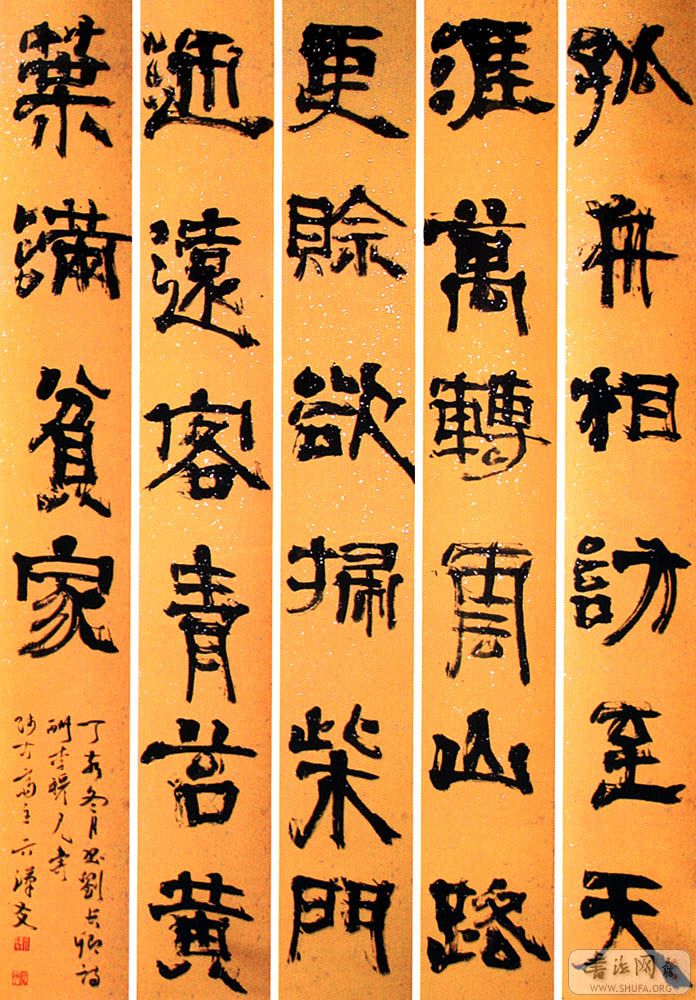 孤舟相訪至天
涯萬轉雲山路
更賒欲掃柴門
迎遠客青苔黃
葉滿貧家
丁亥冬月書劉長卿詩
酬李穆見寄
師古齋主
書法网
WWW.SHUFA.ORG